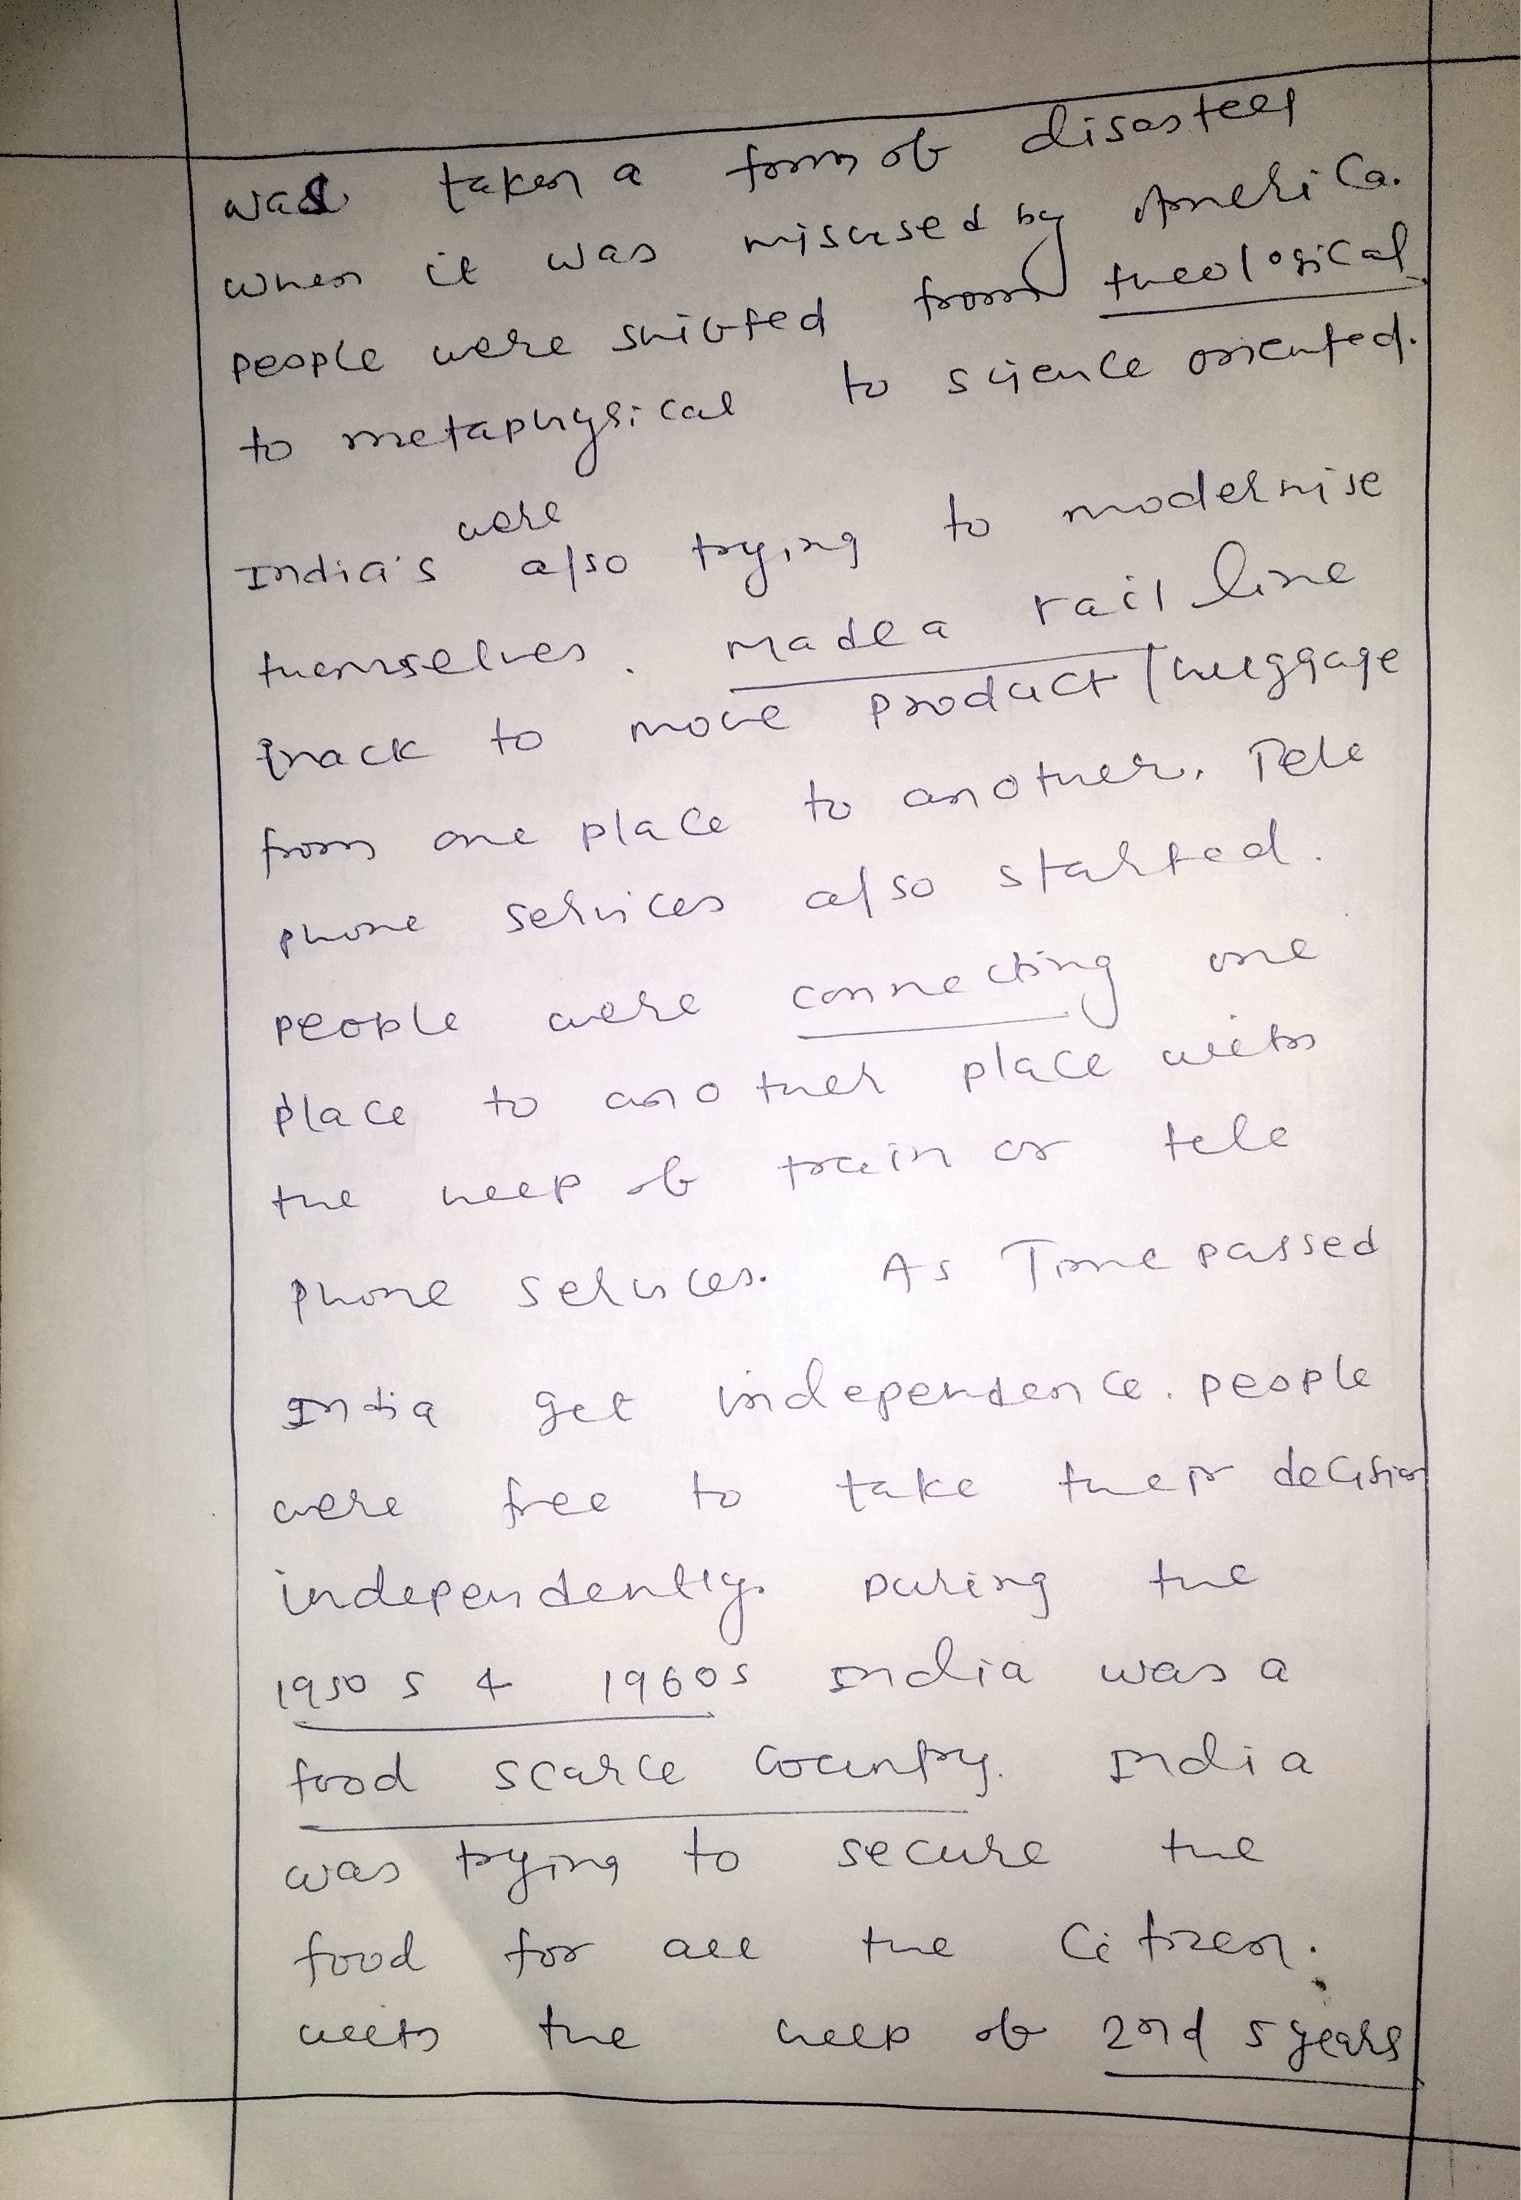 was taken a form of disasteer
when it was misused by America.
people were shifted from theological
to metaphysical to science oriented.
were
India's also trying to modernise
themselves. Made a rail line
track to move product / luggage
from one place to another. Tele
phone services also started.
people were connecting one
place to another place with
the help of train or tele
phone services. As Time passed
India get independence. people
were free to take their decision
independently. During the
1950s & 1960s India was a
food scarce country. India
was trying to secure the
food for all the Citizen.
with the help of 2nd 5 years